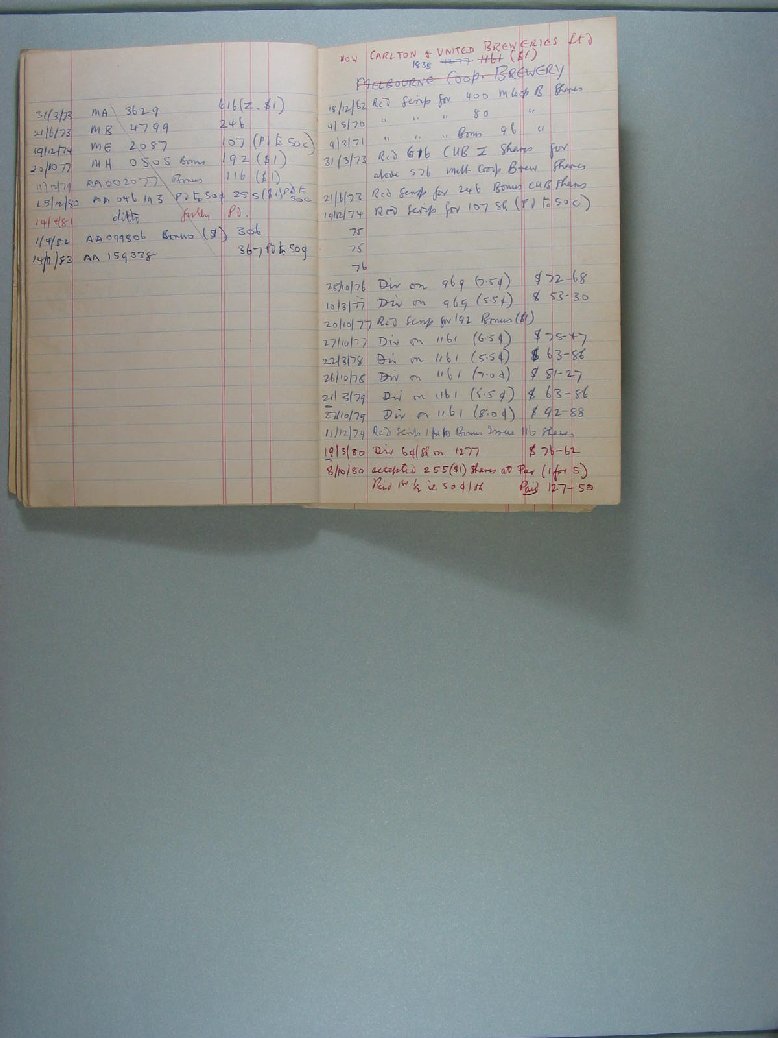 31/3/73 MA 3629 616 (Z. $1)
21/6/73 MB 4799 246
19/12/74 ME 2087 107 (Pd to 50c)
20/10/77 MH 0505 Bonus 192 ($1)
11/12/79 AA002077 Bonus 116 ($1)
AA 046193 Pd to 50¢ 255 ($1) Pd to 50c
14/4/81 ditto further Pd.
1/4/82 AA099806 Bonus ($1) 306
AA 159378 367 Pd to 50¢
NOW CARLTON & UNITED BREWERIES Ltd
1838 1277 1161 ($1)
MELBOURNE COOP. BREWERY
18/12/62 Rec'd Scrip for 400 M Coop B Shares
4/5/70 " " " 80 "
9/3/71 " " " Bonus 96 "
31/3/73 Rec'd 616 CUB Z Shares for
above 576 Melb Coop Brew Shares
21/6/73 Rec'd Scrip for 246 Bonus CUB Shares
19/12/74 Rec'd Scrip for 107 Sh (Pd to 50c)
75
75
76
25/10/76 Div on 969 (7.5¢) $72-68
10/3/77 Div on 969 (5.5¢) $ 53-30
20/10/77 Rec'd Scrip for 192 Bonus ($1)
27/10/77 Div on 1161 (6.5¢) $75-47
22/3/78 Div on 1161 (5.5¢) $ 63-86
26/10/78 Div on 1161 (7.0¢) $ 81-27
21/3/79 Div on 1161 (5.5¢) $ 63-86
25/10/79 Div on 1161 (8.0¢) $ 92-88
11/12/79 Rec'd Scrip 1 for 10 Bonus Issue 116 Shares
19/3/80 Div 6¢/sh on 1277 $ 76-62
8/10/80 accepted 255 ($1) Shares at Par (1 for 5)
Paid 1st ½ ie 50¢/sh Paid 127-50